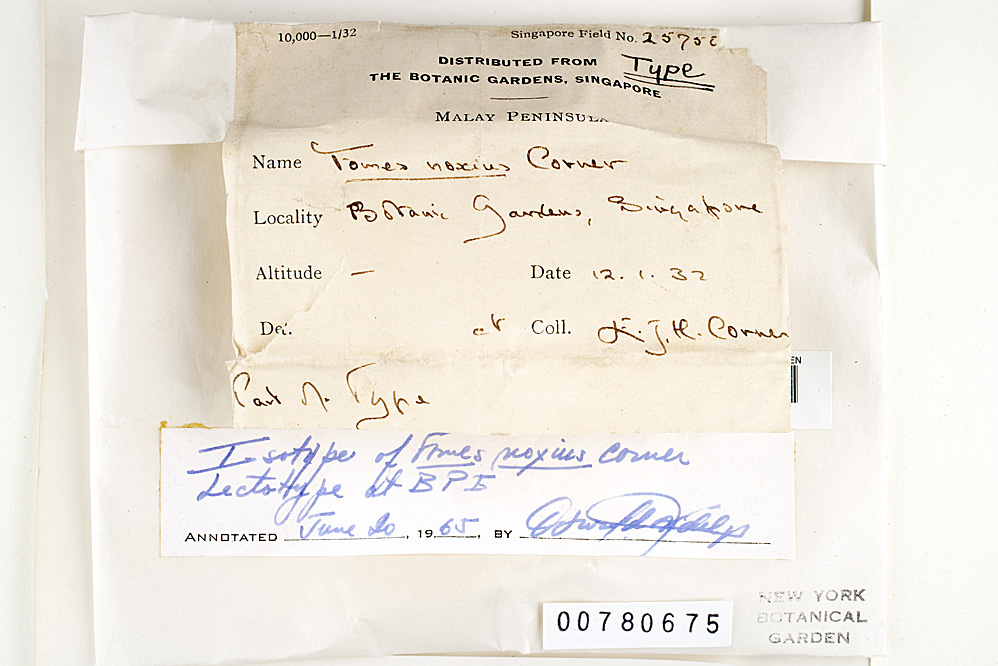 10,000—1/32
Singapore Field No. 25758
Type
DISTRIBUTED FROM
THE BOTANIC GARDENS, SINGAPORE
MALAY PENINSULA
Name Fomes noxius Corner
Locality Botanic Gardens, Singapore
Altitude —
Date 12.1.32
Det. et Coll. E.J.H. Corner
Part of Type
EN
Isotype of Fomes noxius Corner
Lectotype at BPI
ANNOTATED June 20, 1965, BY
00780675
NEW YORK
BOTANICAL
GARDEN